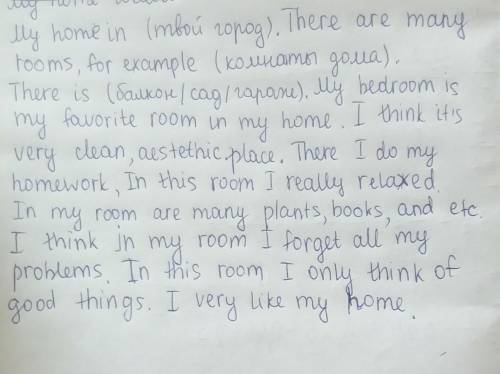 My home
My home in (твой город). There are many
rooms, for example (комнаты дома).
There is (балкон/сад/гараж). My bedroom is
my favorite room in my home. I think it's
very clean, aestethic place. There I do my
homework, In this room I really relaxed.
In my room are many plants, books, and etc.
I think in my room I forget all my
problems. In this room I only think of
good things. I very like my home.